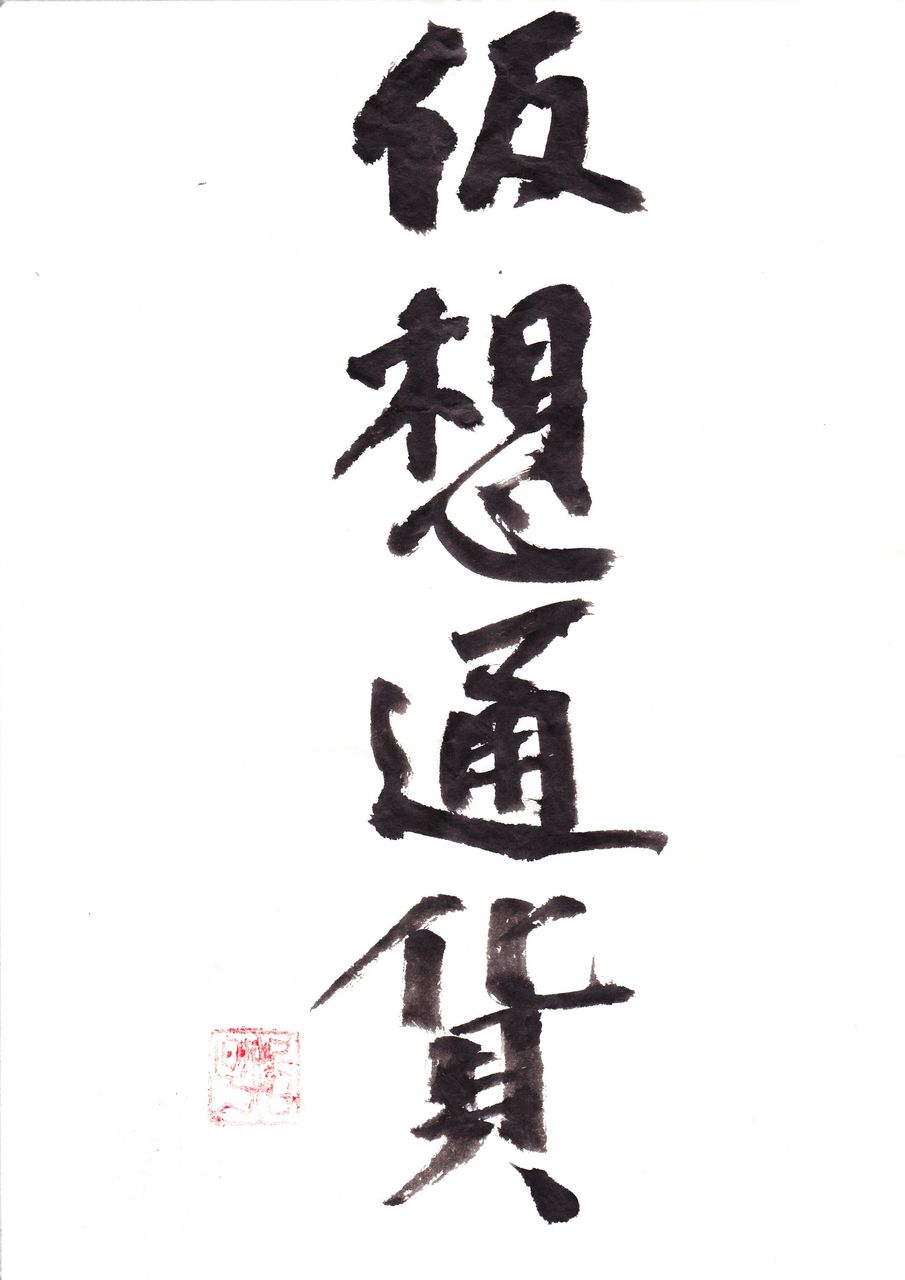 仮想通貨